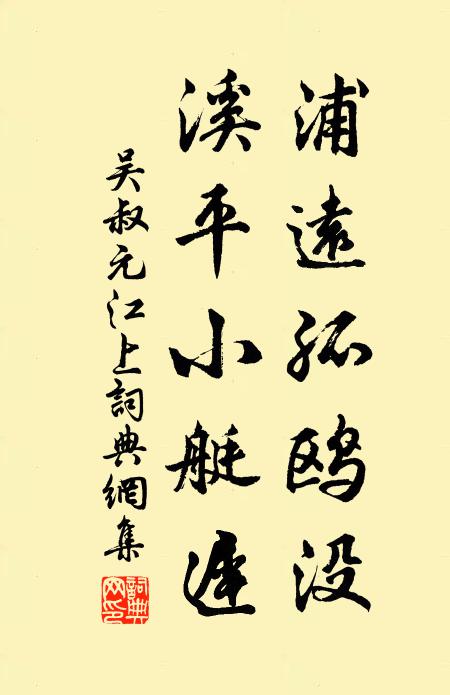 浦遠孤鷗没
溪平小艇遲
吴叔元江上詞典網集
詞典網印